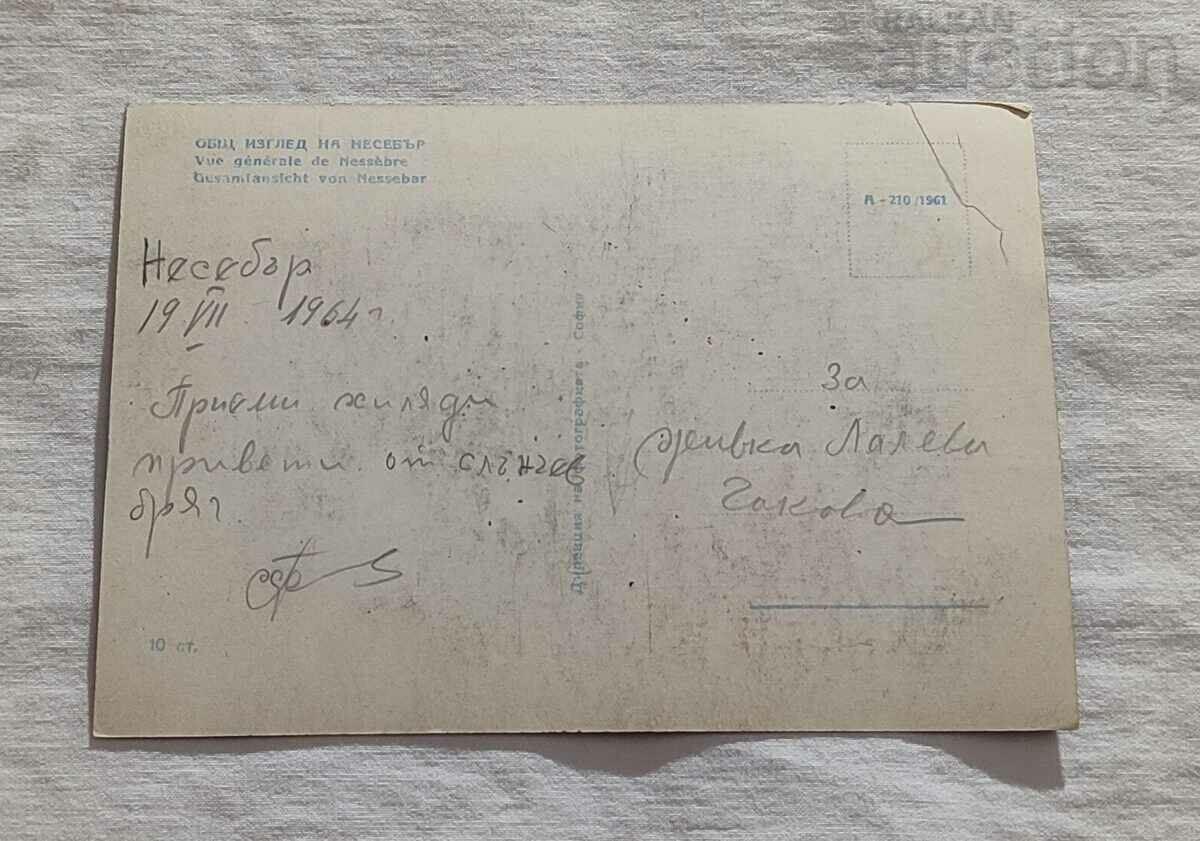 BALKAN
auction
ОБЩ ИЗГЛЕД НА НЕСЕБЪР
Vue générale de Nessèbre
Gesamtansicht von Nessebar
А - 210/1961
Несебър
19 VII 1964 г.
Приеми хиляди
привети от слънчев
бряг
10 ст.
Дирекция на фотографията - София
За
Живка Лалева
Гакова